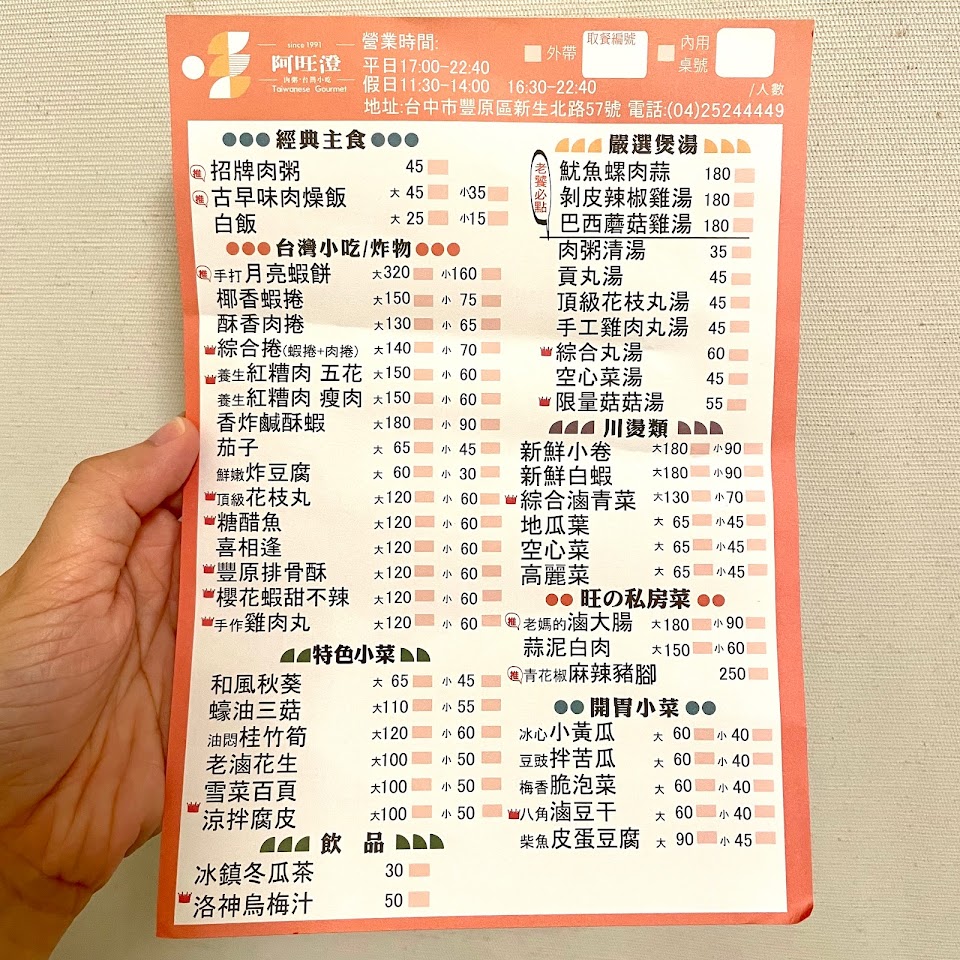 since 1991
阿旺澄
肉粥·台灣小吃
Taiwanese Gourmet
營業時間:
平日17:00-22:40
假日11:30-14:00 16:30-22:40
地址:台中市豐原區新生北路57號 電話:(04)25244449
外帶
取餐編號
內用
桌號
/人數
經典主食
推 招牌肉粥 45
推 古早味肉燥飯 大 45 小35
白飯 大 25 小15
台灣小吃/炸物
推 手打月亮蝦餅 大320 小160
椰香蝦捲 大150 小 75
酥香肉捲 大130 小 65
綜合捲(蝦捲+肉捲) 大140 小 70
養生紅糟肉 五花 大150 小 60
養生紅糟肉 瘦肉 大150 小 60
香炸鹹酥蝦 大180 小 90
茄子 大 65 小 45
鮮嫩炸豆腐 大 60 小 30
頂級花枝丸 大120 小 60
糖醋魚 大120 小 60
喜相逢 大120 小 60
豐原排骨酥 大120 小 60
櫻花蝦甜不辣 大120 小 60
手作雞肉丸 大120 小 60
特色小菜
和風秋葵 大 65 小 45
蠔油三菇 大110 小 55
油悶桂竹筍 大120 小 60
老滷花生 大100 小 50
雪菜百頁 大100 小 50
涼拌腐皮 大100 小 50
飲 品
冰鎮冬瓜茶 30
洛神烏梅汁 50
嚴選煲湯
老饕必點
魷魚螺肉蒜 180
剝皮辣椒雞湯 180
巴西蘑菇雞湯 180
肉粥清湯 35
貢丸湯 45
頂級花枝丸湯 45
手工雞肉丸湯 45
綜合丸湯 60
空心菜湯 45
限量菇菇湯 55
川燙類
新鮮小卷 大180 小90
新鮮白蝦 大180 小90
綜合滷青菜 大130 小70
地瓜葉 大 65 小45
空心菜 大 65 小45
高麗菜 大 65 小45
旺の私房菜
推 老媽的滷大腸 大180 小90
蒜泥白肉 大150 小60
推 青花椒麻辣豬腳 250
開胃小菜
冰心小黃瓜 大 60 小 40
豆豉拌苦瓜 大 60 小 40
梅香脆泡菜 大 60 小 40
八角滷豆干 大 60 小 40
柴魚皮蛋豆腐 大 90 小 45